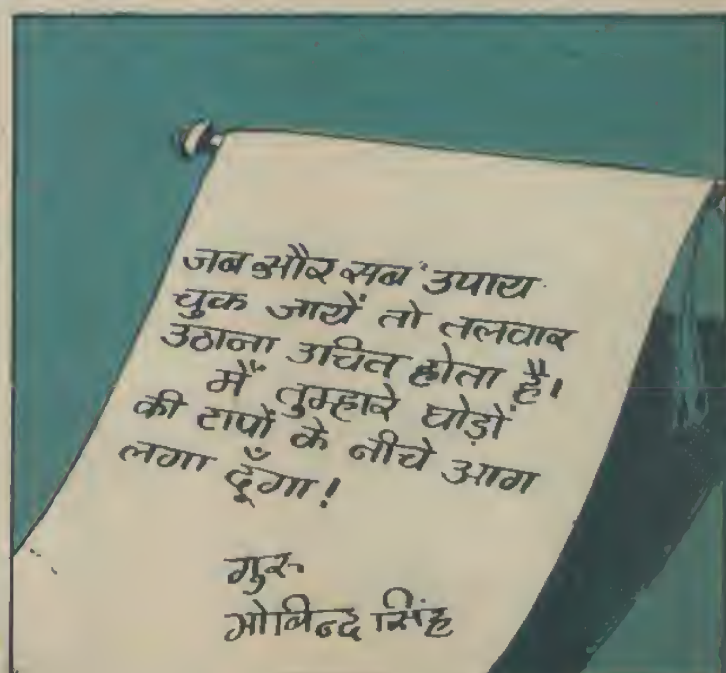 जब और सब उपाय
चुक जायें तो तलवार
उठाना उचित होता है।
मैं तुम्हारे घोड़ों
की टापों के नीचे आग
लगा दूँगा!
गुरु
गोबिन्द सिंह